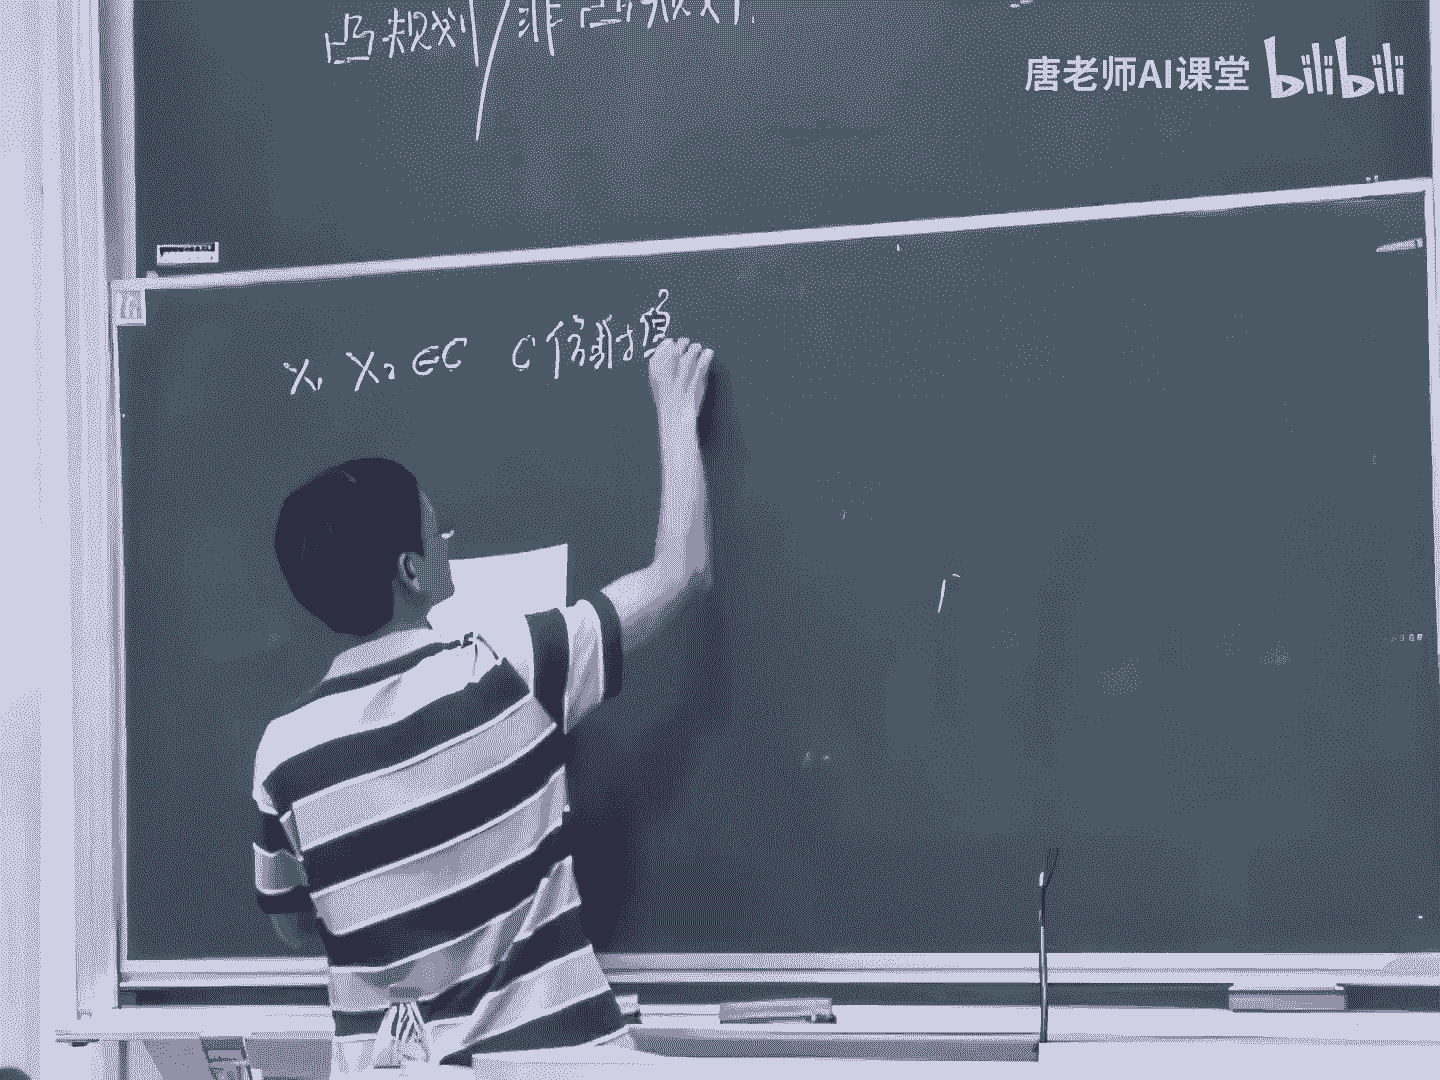 凸规划/非凸规划.
唐老师AI课堂 bilibili
X₁ X₂ ∈C C仿射